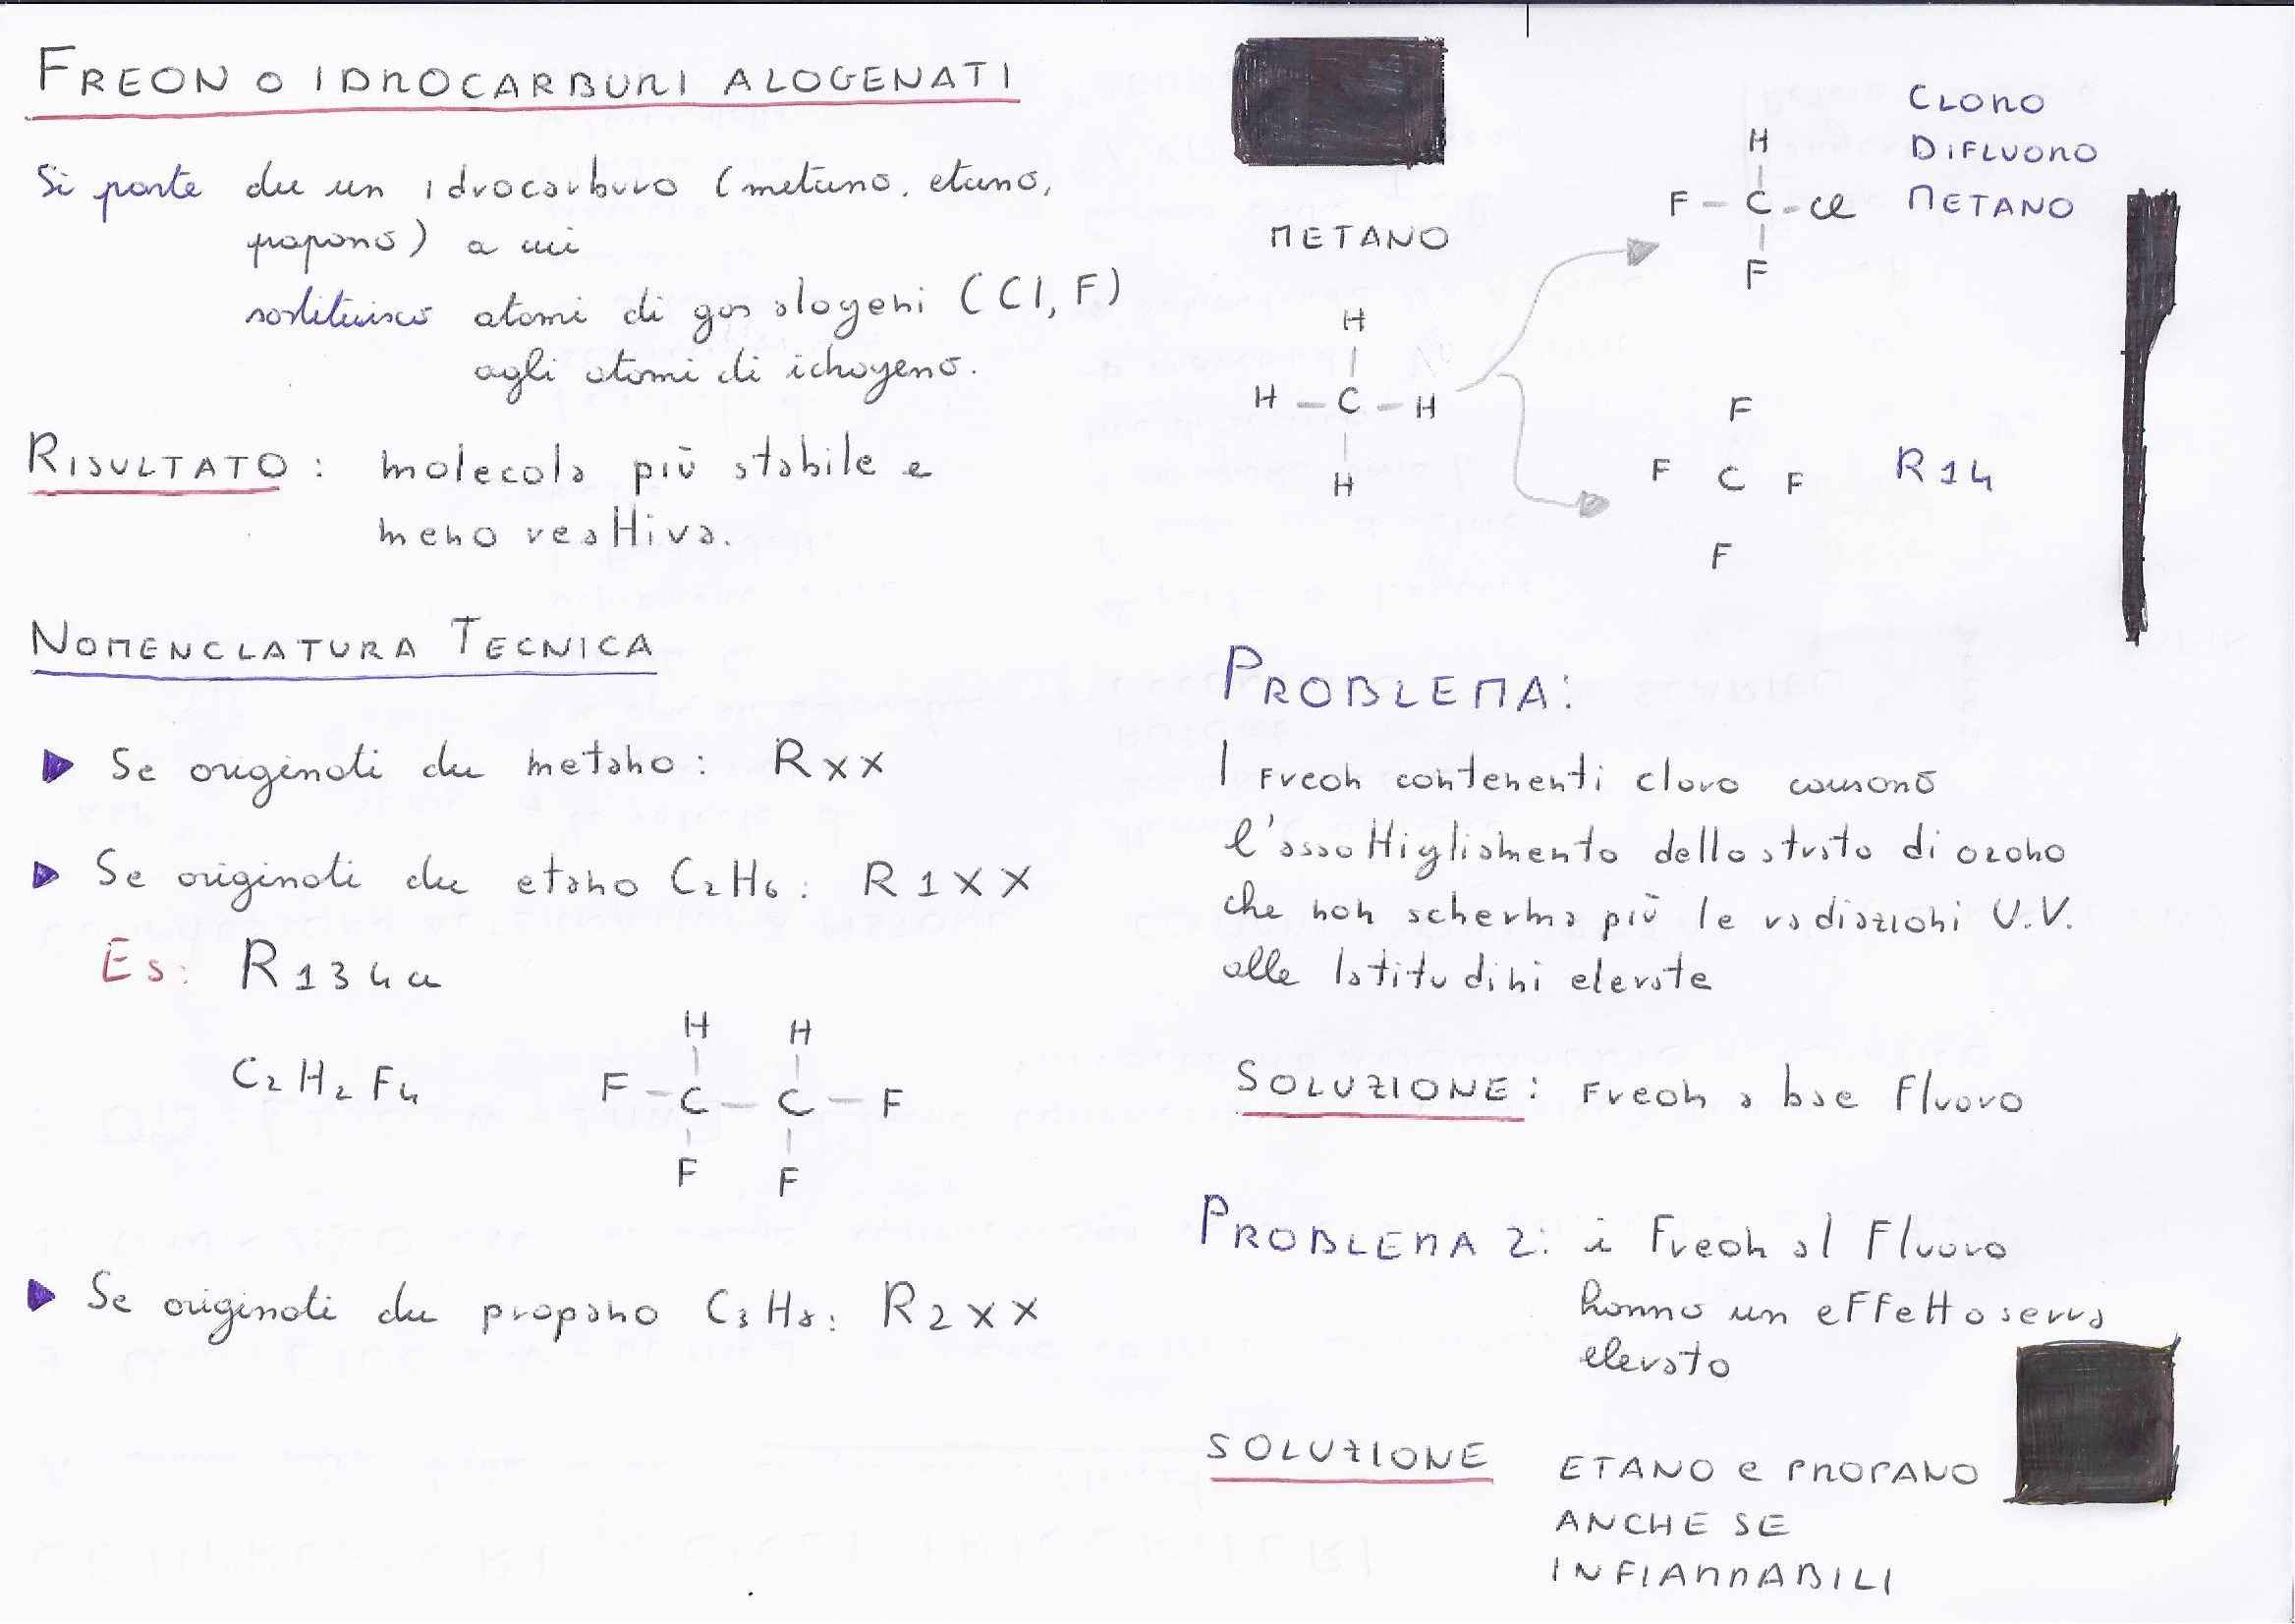 FREON O IDROCARBURI ALOGENATI
Si parte da un idrocarburo (metano, etano,
propano) a cui
sostituisco atomi di gas alogeni (Cl, F)
agli atomi di idrogeno.
RISULTATO: molecola più stabile e
meno reattiva.
NOMENCLATURA TECNICA
Se originati da metano: RXX
Se originati da etano C₂H₆: R1XX
Es: R134a
H H
C₂H₂F₄ F-C-C-F
F F
Se originati da propano C₃H₈: R2XX
METANO
H
H-C-H
H
CLORO
DIFLUORO
METANO
H
F-C-Cl
F
F
F C F R14
F
PROBLEMA:
I Freon contenenti cloro causano
l'assottigliamento dello strato di ozono
che non scherma più le radiazioni U.V.
alle latitudini elevate
SOLUZIONE: Freon a base Fluoro
PROBLEMA 2: i Freon al Fluoro
hanno un effetto serra
elevato
SOLUZIONE ETANO e PROPANO
ANCHE SE
INFIAMMABILI